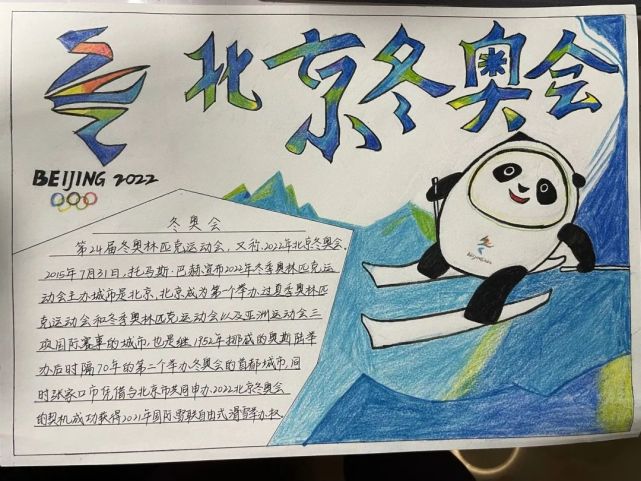 北京冬奥会
BEIJING 2022
冬奥会
第24届冬奥林匹克运动会,又称2022年北京冬奥会.
2015年7月31日,托马斯·巴赫宣布2022年冬季奥林匹克运
动会主办城市是北京,北京成为第一个举办过夏季奥林匹
克运动会和冬季奥林匹克运动会以及亚洲运动会三
项国际赛事的城市,也是继1952年挪威的奥斯陆举
办后时隔70年的第二个举办冬奥会的首都城市,同
时张家口市凭借与北京市共同申办2022北京冬奥会
的契机成功获得2021年国际雪联自由式滑雪举办权.
BEIJING 2022